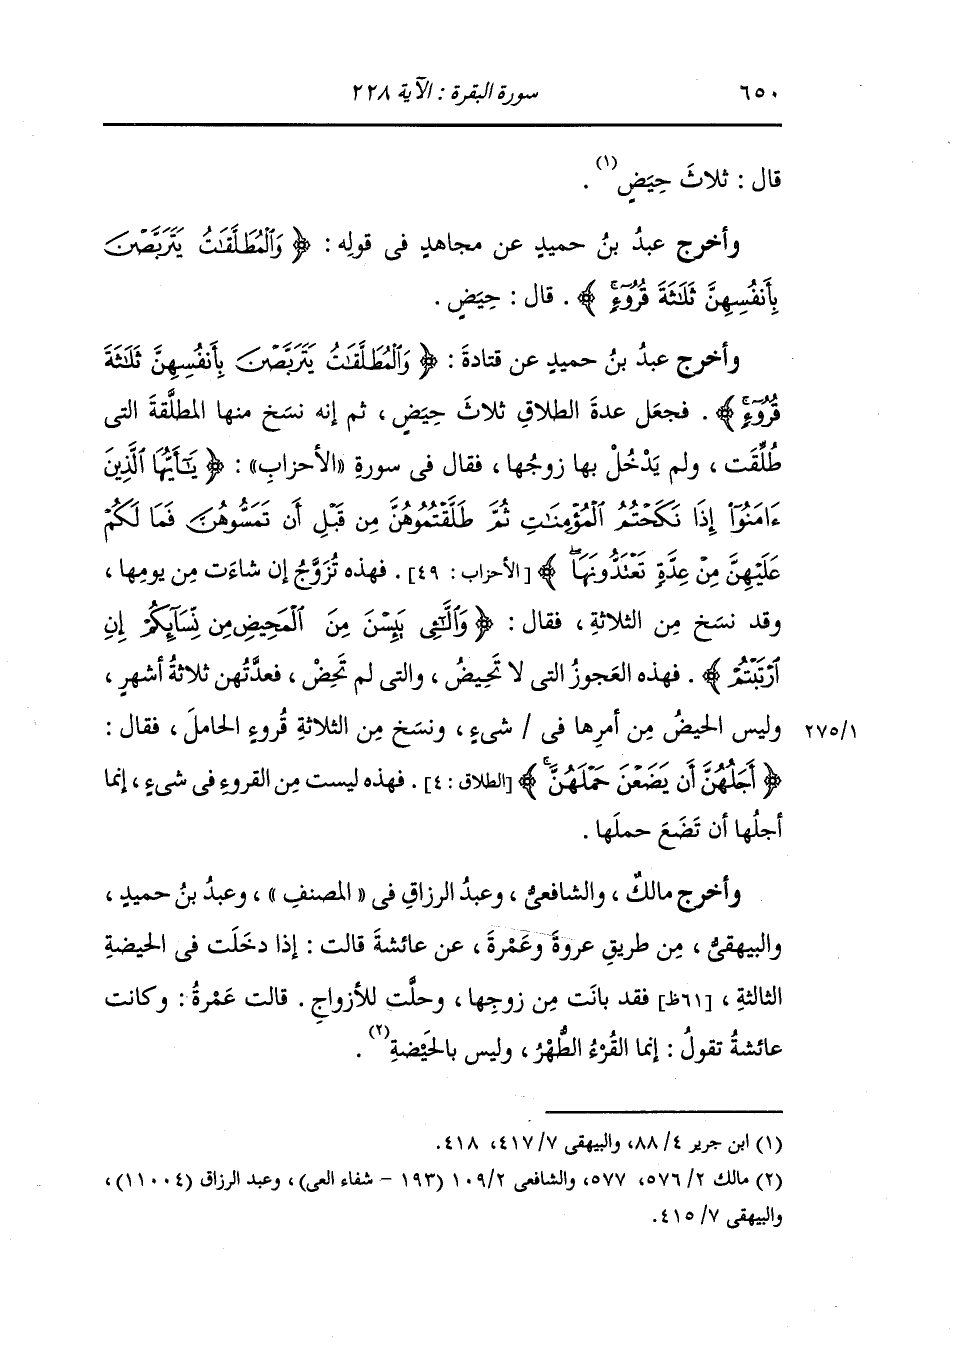 ٦٥٠ سورة البقرة : الآية ٢٢٨
قال : ثلاثَ حِيَضٍ(١) .
وأخرج عبدُ بنُ حميدٍ عن مجاهدٍ فى قولِه : ﴿ وَٱلْمُطَلَّقَٰتُ يَتَرَبَّصْنَ
بِأَنفُسِهِنَّ ثَلَٰثَةَ قُرُوٓءٍ ﴾ . قال : حِيَضٍ .
وأخرج عبدُ بنُ حميدٍ عن قتادةَ : ﴿ وَٱلْمُطَلَّقَٰتُ يَتَرَبَّصْنَ بِأَنفُسِهِنَّ ثَلَٰثَةَ
قُرُوٓءٍ ﴾ . فجعَل عدةَ الطلاقِ ثلاثَ حِيَضٍ ، ثم إنه نسَخ منها المطلَّقةَ التى
طُلِّقَت ، ولم يَدْخُلْ بها زوجُها ، فقال فى سورةِ «الأحزابِ» : ﴿ يَٰٓأَيُّهَا ٱلَّذِينَ
ءَامَنُوٓا۟ إِذَا نَكَحْتُمُ ٱلْمُؤْمِنَٰتِ ثُمَّ طَلَّقْتُمُوهُنَّ مِن قَبْلِ أَن تَمَسُّوهُنَّ فَمَا لَكُمْ
عَلَيْهِنَّ مِنْ عِدَّةٍ تَعْتَدُّونَهَا ۖ ﴾ [الأحزاب : ٤٩] . فهذه تُزَوَّجُ إن شاءَت مِن يومِها ،
وقد نسَخ مِن الثلاثةِ ، فقال : ﴿ وَٱلَّٰٓـِٔى يَئِسْنَ مِنَ ٱلْمَحِيضِ مِن نِّسَآئِكُمْ إِنِ
ٱرْتَبْتُمْ ﴾ . فهذه العَجوزُ التى لا تَحِيضُ ، والتى لم تَحِضْ ، فعدَّتُهن ثلاثةُ أشهرٍ ،
وليس الحَيضُ مِن أمرِها فى / شىءٍ ، ونسَخ مِن الثلاثةِ قُروءٍ الحاملَ ، فقال : ٢٧٥/١
﴿ أَجَلُهُنَّ أَن يَضَعْنَ حَمْلَهُنَّ ۚ ﴾ [الطلاق : ٤] . فهذه ليست مِن القروءِ فى شىءٍ ، إنما
أجلُها أن تَضَعَ حملَها .
وأخرج مالكٌ ، والشافعىُّ ، وعبدُ الرزاقِ فى « المصنفِ » ، وعبدُ بنُ حميدٍ ،
والبيهقىُّ ، مِن طريقِ عروةَ وعَمْرةَ ، عن عائشةَ قالت : إذا دخَلَت فى الحَيضةِ
الثالثةِ ، [٦١ظ] فقد بانَت مِن زوجِها ، وحلَّت للأزواجِ . قالت عَمْرةُ : وكانت
عائشةُ تقولُ : إنما القُرْءُ الطُّهْرُ ، وليس بالحَيْضةِ(٢) .
(١) ابن جرير ٤/ ٨٨، والبيهقى ٧/ ٤١٧، ٤١٨.
(٢) مالك ٢/ ٥٧٦، ٥٧٧، والشافعى ١٠٩/٢ (١٩٣ - شفاء العى) ، وعبد الرزاق (١١٠٠٤) ،
والبيهقى ٧/ ٤١٥.